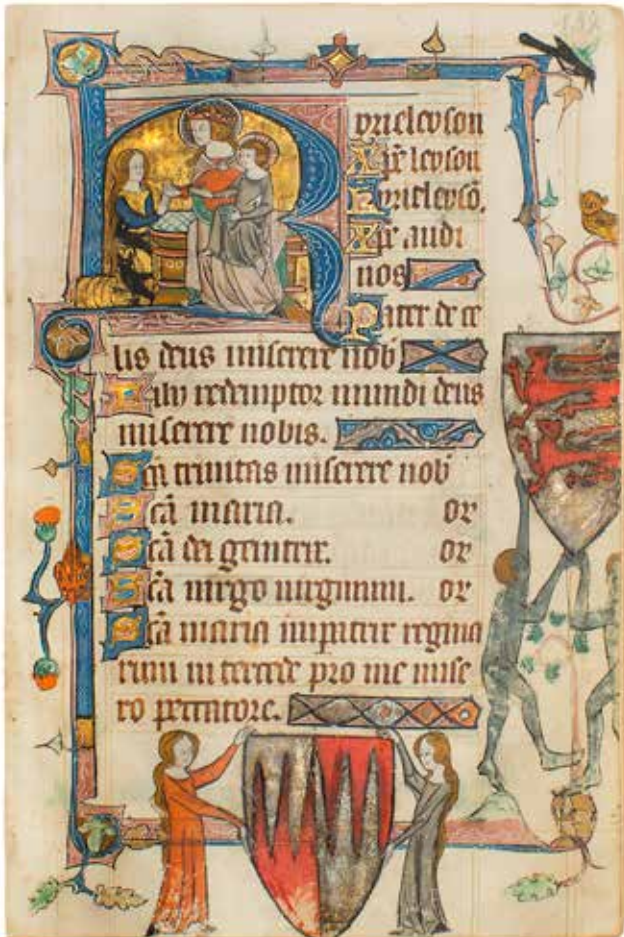 Kyrieleyson
Xpe leyson
Kyrieleysō.
Xpe audi
nos
Pater de ce
lis deus miserere nob̄
Fily redemptor mundi deus
miserere nobis.
Sc̄a trinitas miserere nob̄
Sc̄a maria. or
Sc̄a dei genitrix. or
Sc̄a virgo virginum. or
Sc̄a maria imperatrix regina
rum intercede pro me mise
ro peccatore.